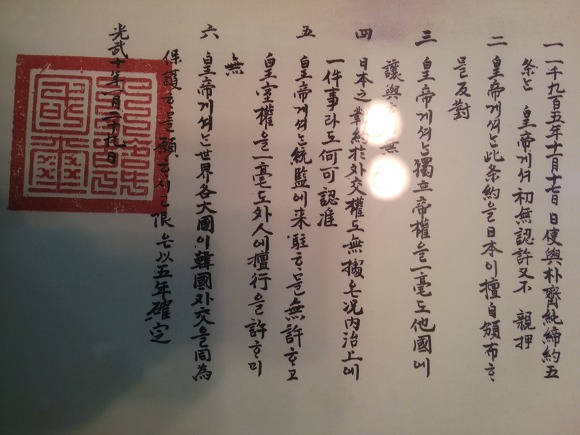 一 一千九百五年十一月十七日日使與朴齊純締約五
条는 皇帝게셔 初無認許又不 親押
二 皇帝게셔는此条約을日本이擅自頒布ᄒᆞ
믈反對
三 皇帝게셔는獨立帝權을一毫도他國에
讓與 無
四 日本之勒約於外交權도無據온况内治上에
一件事라도何可認准
五 皇帝게셔는統監에来駐ᄒᆞ믈無許ᄒᆞ고
皇室權을一毫도外人에擅行을許ᄒᆞ미
無
六 皇帝게셔는世界各大國이韓國外交을同為
保護ᄒᆞ믈願ᄒᆞ시고限은以五年確定
光武十年一月二十九日